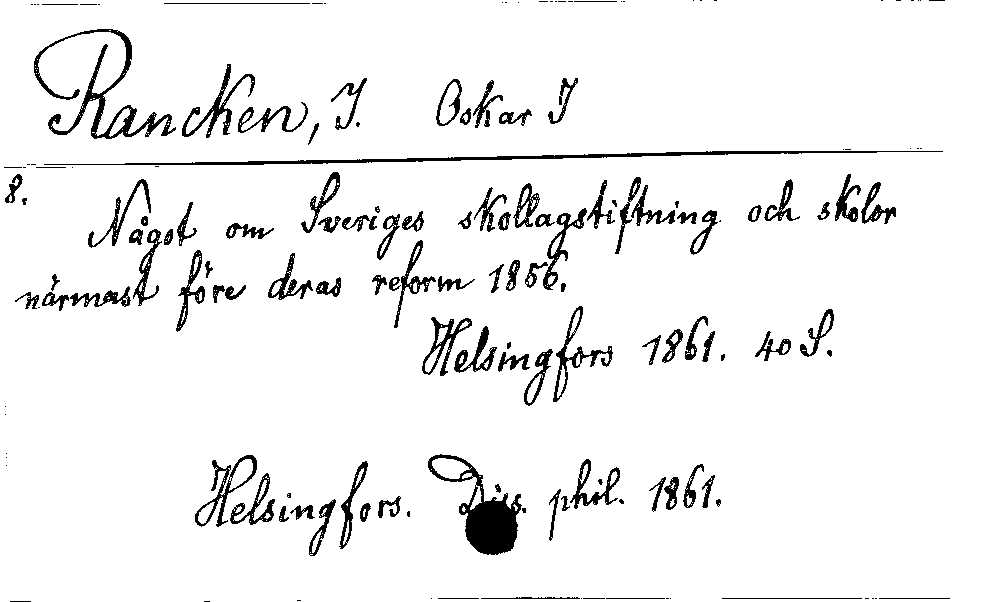 Rancken, J. Oskar I
8. Något om Sveriges skollagstiftning och skolor
närmast före deras reform 1856.
Helsingfors 1861. 40 S.
Helsingfors. Diss. phil. 1861.